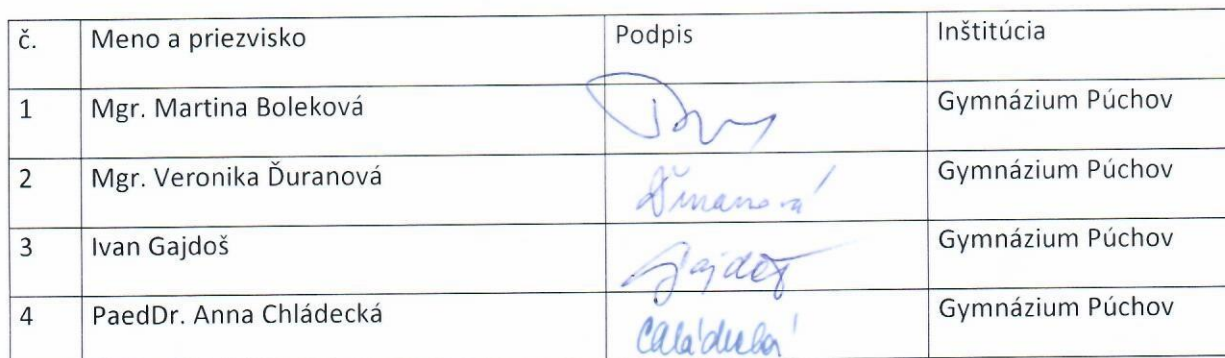 č. Meno a priezvisko Podpis Inštitúcia
1 Mgr. Martina Boleková Gymnázium Púchov
2 Mgr. Veronika Ďuranová Ďuranová Gymnázium Púchov
3 Ivan Gajdoš Gajdoš Gymnázium Púchov
4 PaedDr. Anna Chládecká Chládecká Gymnázium Púchov